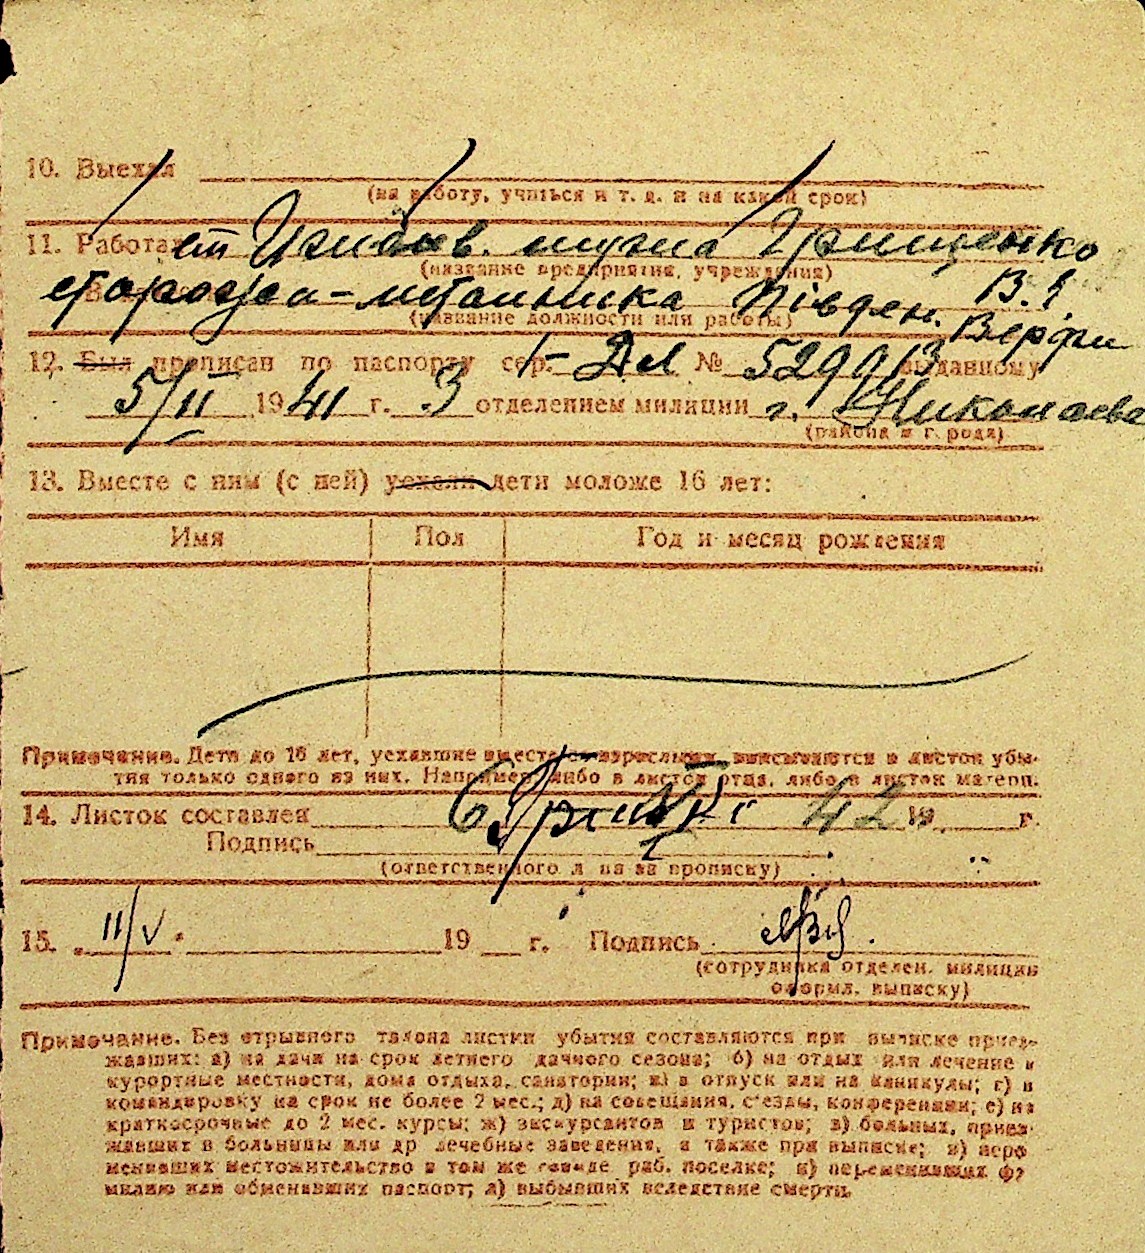 10. Выехал
(на работу, учиться и т. д. и на какой срок)
11. Работа
мужа Грищенко
(название предприятия, учреждения)
В.
Півден. Верфи
(название должности или работы)
12. Был прописан по паспорту сер. № 529913 выданному
5/II 1941 г. 3 отделением милиции г. Николаева
(района и города)
13. Вместе с ним (с ней) уехали дети моложе 16 лет:
Имя Пол Год и месяц рождения
Примечание. Дети до 16 лет, уехавшие вместе со взрослыми, вписываются в листок убы-
тия только одного из них. Например, либо в листок отца, либо в листок матери.
14. Листок составлен 6 42 19 г.
Подпись
(ответственного л на за прописку)
15. 11/V 19 г. Подпись
(сотрудника отделен. милиции
оформл. выписку)
Примечание. Без отрывного талона листки убытия составляются при выписке приез-
жавших: а) на дачи на срок летнего дачного сезона; б) на отдых или лечение в
курортные местности, дома отдыха, санатории; в) в отпуск или на каникулы; г) в
командировку на срок не более 2 мес.; д) на совещания, с'езды, конференции; е) на
краткосрочные до 2 мес. курсы; ж) экскурсантов и туристов; з) больных, приез-
жавших в больницы или др лечебные заведения, а также при выписке; и) пере
менивших местожительство в том же городе раб. поселке; к) переменивших фа
милию или обменявших паспорт; л) выбывших вследствие смерти.